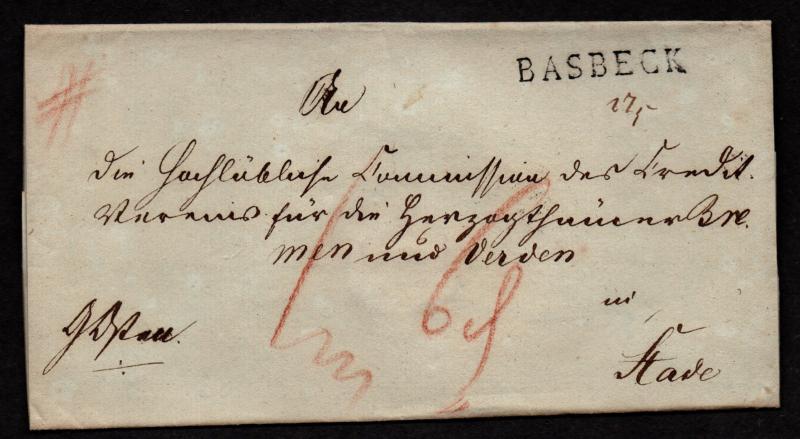 BASBECK
27/5
An
die Hochlöbliche Commission des Credit-
Vereins für die Herzogthümer Bre-
men und Verden
in
Stade